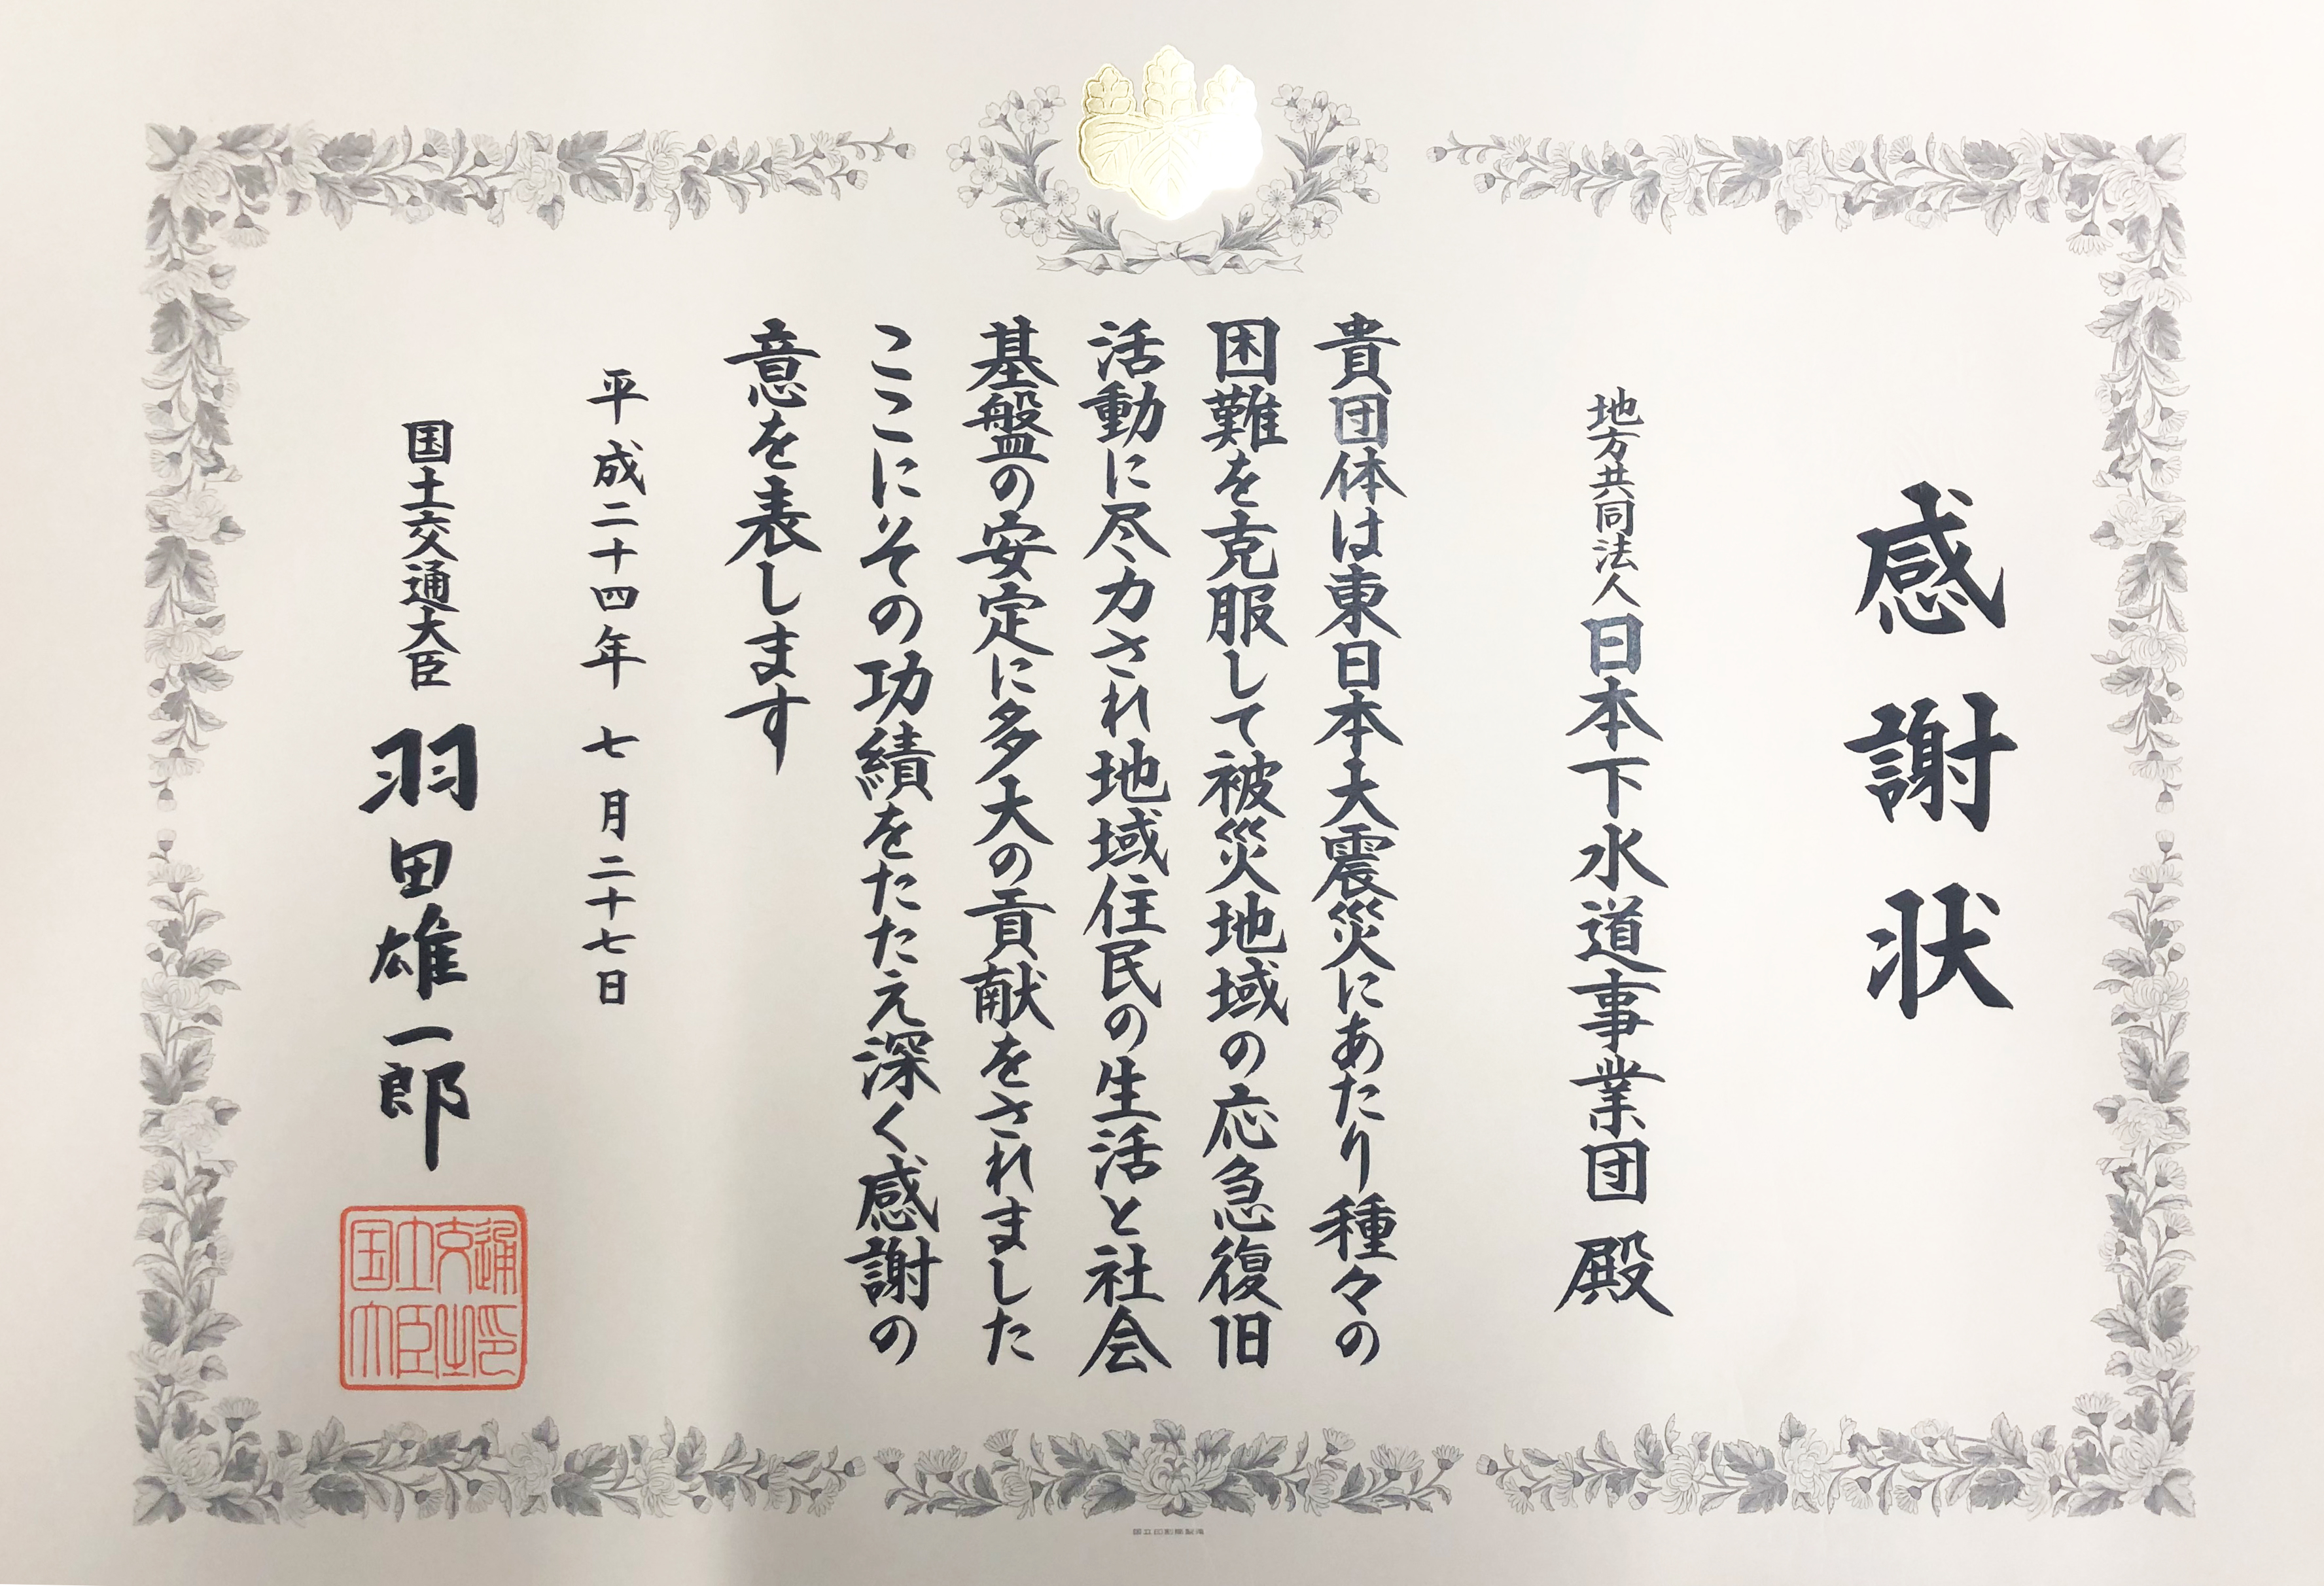 感謝状
地方共同法人日本下水道事業団 殿
貴団体は東日本大震災にあたり種々の
困難を克服して被災地域の応急復旧
活動に尽力され地域住民の生活と社会
基盤の安定に多大の貢献をされました
ここにその功績をたたえ深く感謝の
意を表します
平成二十四年 七月二十七日
国土交通大臣 羽田雄一郎
国土交通
大臣之印
国立印刷局製造